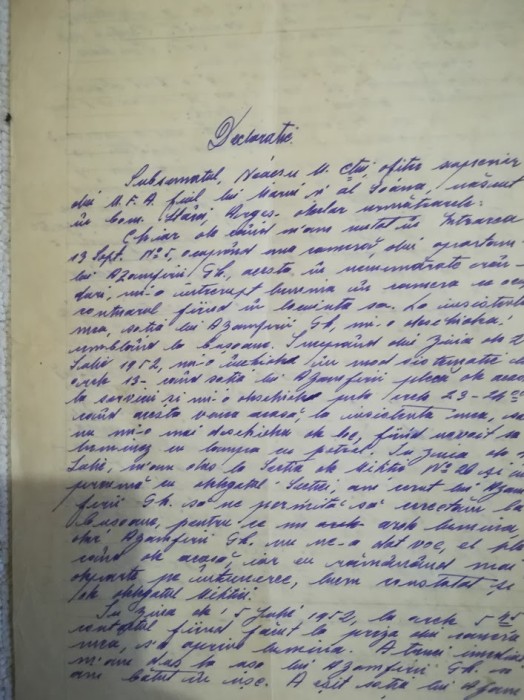 Declaratie.
Subsemnatul, Neacsu M. Ctin, ofiter superior
din M.F.A. fiul lui Marin si al Ioana, născut
în com. Argeș declar următoarele:
Chiar de când m'am mutat în Intrarea
13 Sept. Nº 5, ocupând una cameră, din apartam.
lui Azamfirii Gh, acesta, în nenumărate rân-
duri, mi-a întrerupt lumina în camera ce ocup
contuarul fiind în locuința sa. La insistența
mea, soția lui Azamfirii Gh, mi-o deschidea,
umblând la bușoane. Începând din ziua de 2
Iulie 1952, mi-a închis în mod sistematic la
orele 13- când soția lui Azamfirii pleca de acasă
la serviciu si mi-o deschidea pela orele 23-24
când acesta venea acasă, la insistența mea, sau
nu mi-o mai deschidea de loc, fiind nevoit să
luminez cu lampa cu petrol. In ziua de
Iulie, m'am dus la Sectia de Militie Nº 20 și îm
preună cu delegatul Sectiei, am cerut lui Azam-
firii Gh. să ne permită să cercetăm la
bușoane, pentru ce nu arde lumina,
dar Azamfirii Gh. nu ne-a dat voe, el ple
când de acasă, iar eu rămânând mai
departe pe întunerec, lucru constatat și
de delegatul Militiei.
In ziua de 5 Iulie 1952, la orele 5
contactul fiind făcut la priza din camera
mea, s'a oprit lumina. Atunci imediat
m'am dus la ușa lui Azamfirii Gh. și
am bătut în ușe. A eșit soția lui Azam